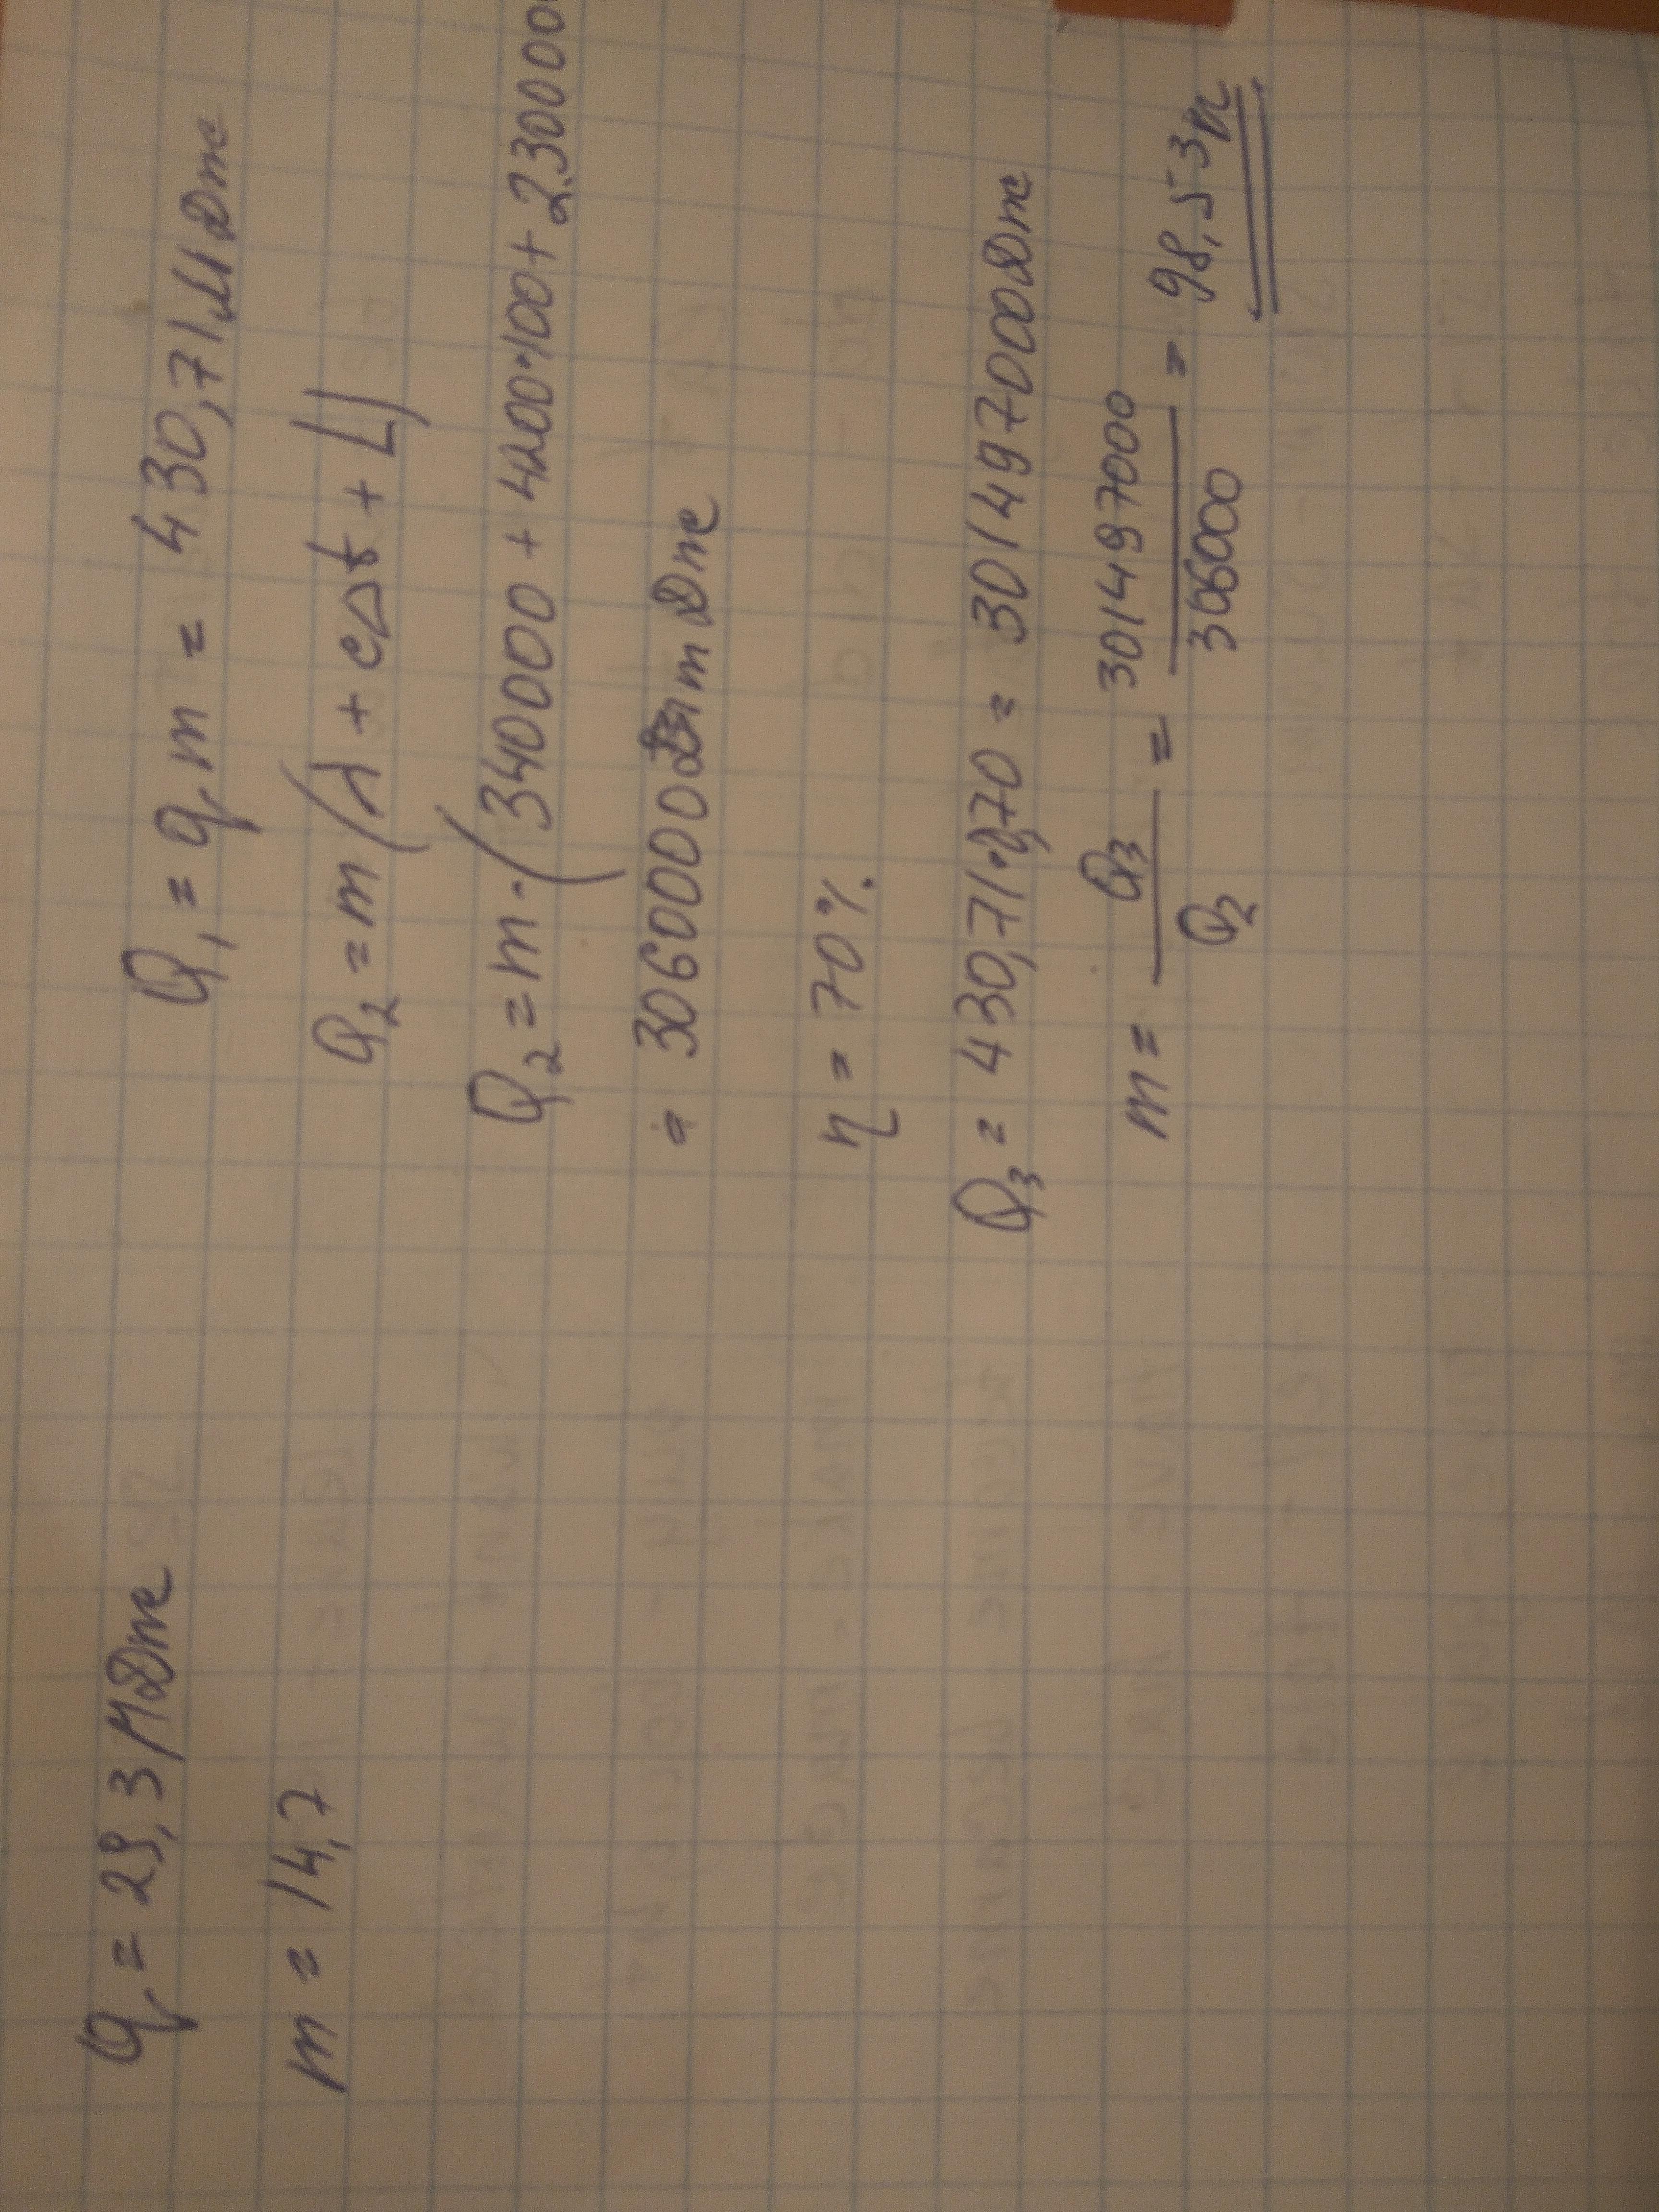 q = 29,3 МДж
m = 14,7
Q₁ = qm = 430,71 МДж
Q₂ = m(λ + cΔt + L)
Q₂ = m·(340000 + 4200·100 + 2300000
= 3060000 m Дж
η = 70%
Q₃ = 430,71·0,70 = 301497000 Дж
m = Q₃/Q₂ = 301497000/306000 = 98,53 л